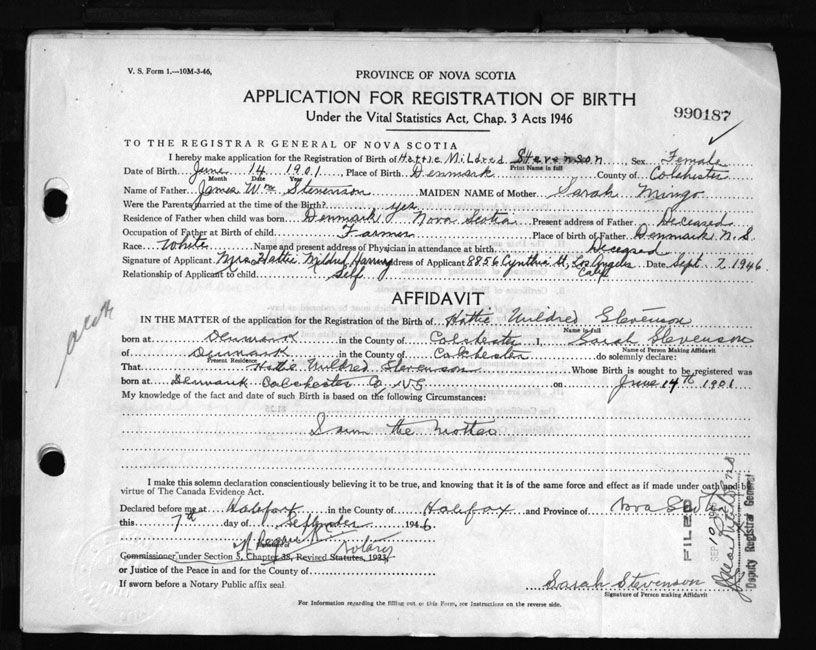 V. S. Form 1.—10M-3-46.
PROVINCE OF NOVA SCOTIA
APPLICATION FOR REGISTRATION OF BIRTH
990187
Under the Vital Statistics Act, Chap. 3 Acts 1946
TO THE REGISTRAR GENERAL OF NOVA SCOTIA
I hereby make application for the Registration of Birth of Hattie Mildred Stevenson, Sex Female
Print Name in full
Date of Birth June 14 1901, Place of Birth Denmark County of Colchester
Month Date Year
Name of Father James Wm Stevenson MAIDEN NAME of Mother Sarah Mingo
Were the Parents married at the time of the Birth? yes
Residence of Father when child was born Denmark Nova Scotia Present address of Father Deceased
Occupation of Father at Birth of child Farmer Place of birth of Father Denmark N.S.
Race White Name and present address of Physician in attendance at birth Deceased
Signature of Applicant Mrs. Hattie Mildred Address of Applicant 8856 Cynthia St, Los Angeles Calif. Date Sept 2 1946
Relationship of Applicant to child Self
AFFIDAVIT
IN THE MATTER of the application for the Registration of Birth of Hattie Mildred Stevenson
Name in full
born at Denmark in the County of Colchester I, Sarah Stevenson
Name of Person Making Affidavit
of Denmark in the County of Colchester do solemnly declare:
Present Residence
That Hattie Mildred Stevenson Whose Birth is sought to be registered was
born at Denmark Colchester Co. N.S. on June 14th 1901
My knowledge of the fact and date of such Birth is based on the following Circumstances:
I am the Mother
I make this solemn declaration conscientiously believing it to be true, and knowing that it is of the same force and effect as if made under oath and by
virtue of The Canada Evidence Act.
Declared before me at Halifax in the County of Halifax and Province of Nova Scotia
this 7th day of September 1946
Notary
Commissioner under Section 5, Chapter 38, Revised Statutes, 1923,
or Justice of the Peace in and for the County of
If sworn before a Notary Public affix seal.
Sarah Stevenson
Signature of Person making Affidavit
For Information regarding the filling out of this Form, see Instructions on the reverse side.
FILED
Deputy Registrar General